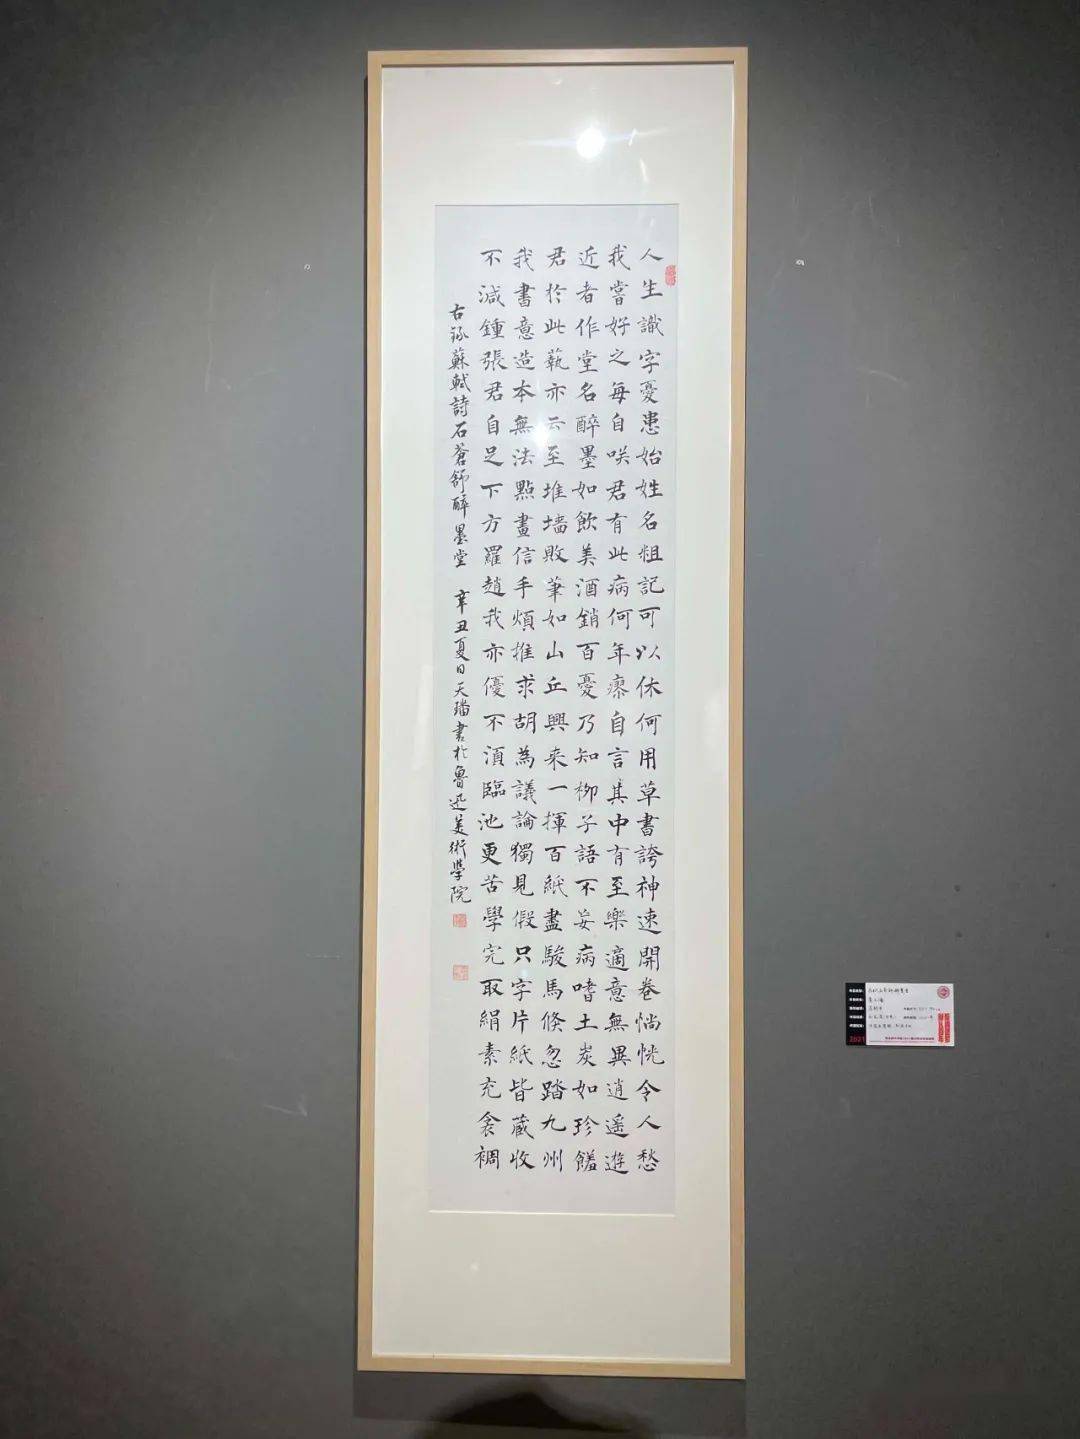 人生識字憂患始姓名粗記可以休何用草書誇神速開卷惝恍令人愁
我嘗好之每自咲君有此病何年瘳自言其中有至樂適意無異逍遥遊
近者作堂名醉墨如飲美酒銷百憂乃知柳子語不妄病嗜土炭如珍饈
君於此藝亦云至堆墻敗筆如山丘興来一揮百紙盡駿馬倏忽踏九州
我書意造本無法點畫信手煩推求胡為議論獨見假只字片紙皆蔵收
不減鍾張君自足下方羅趙我亦優不須臨池更苦學完取絹素充衾裯
右録蘇軾詩石蒼舒醉墨堂 辛丑夏日天璠書於魯迅美術學院
2021